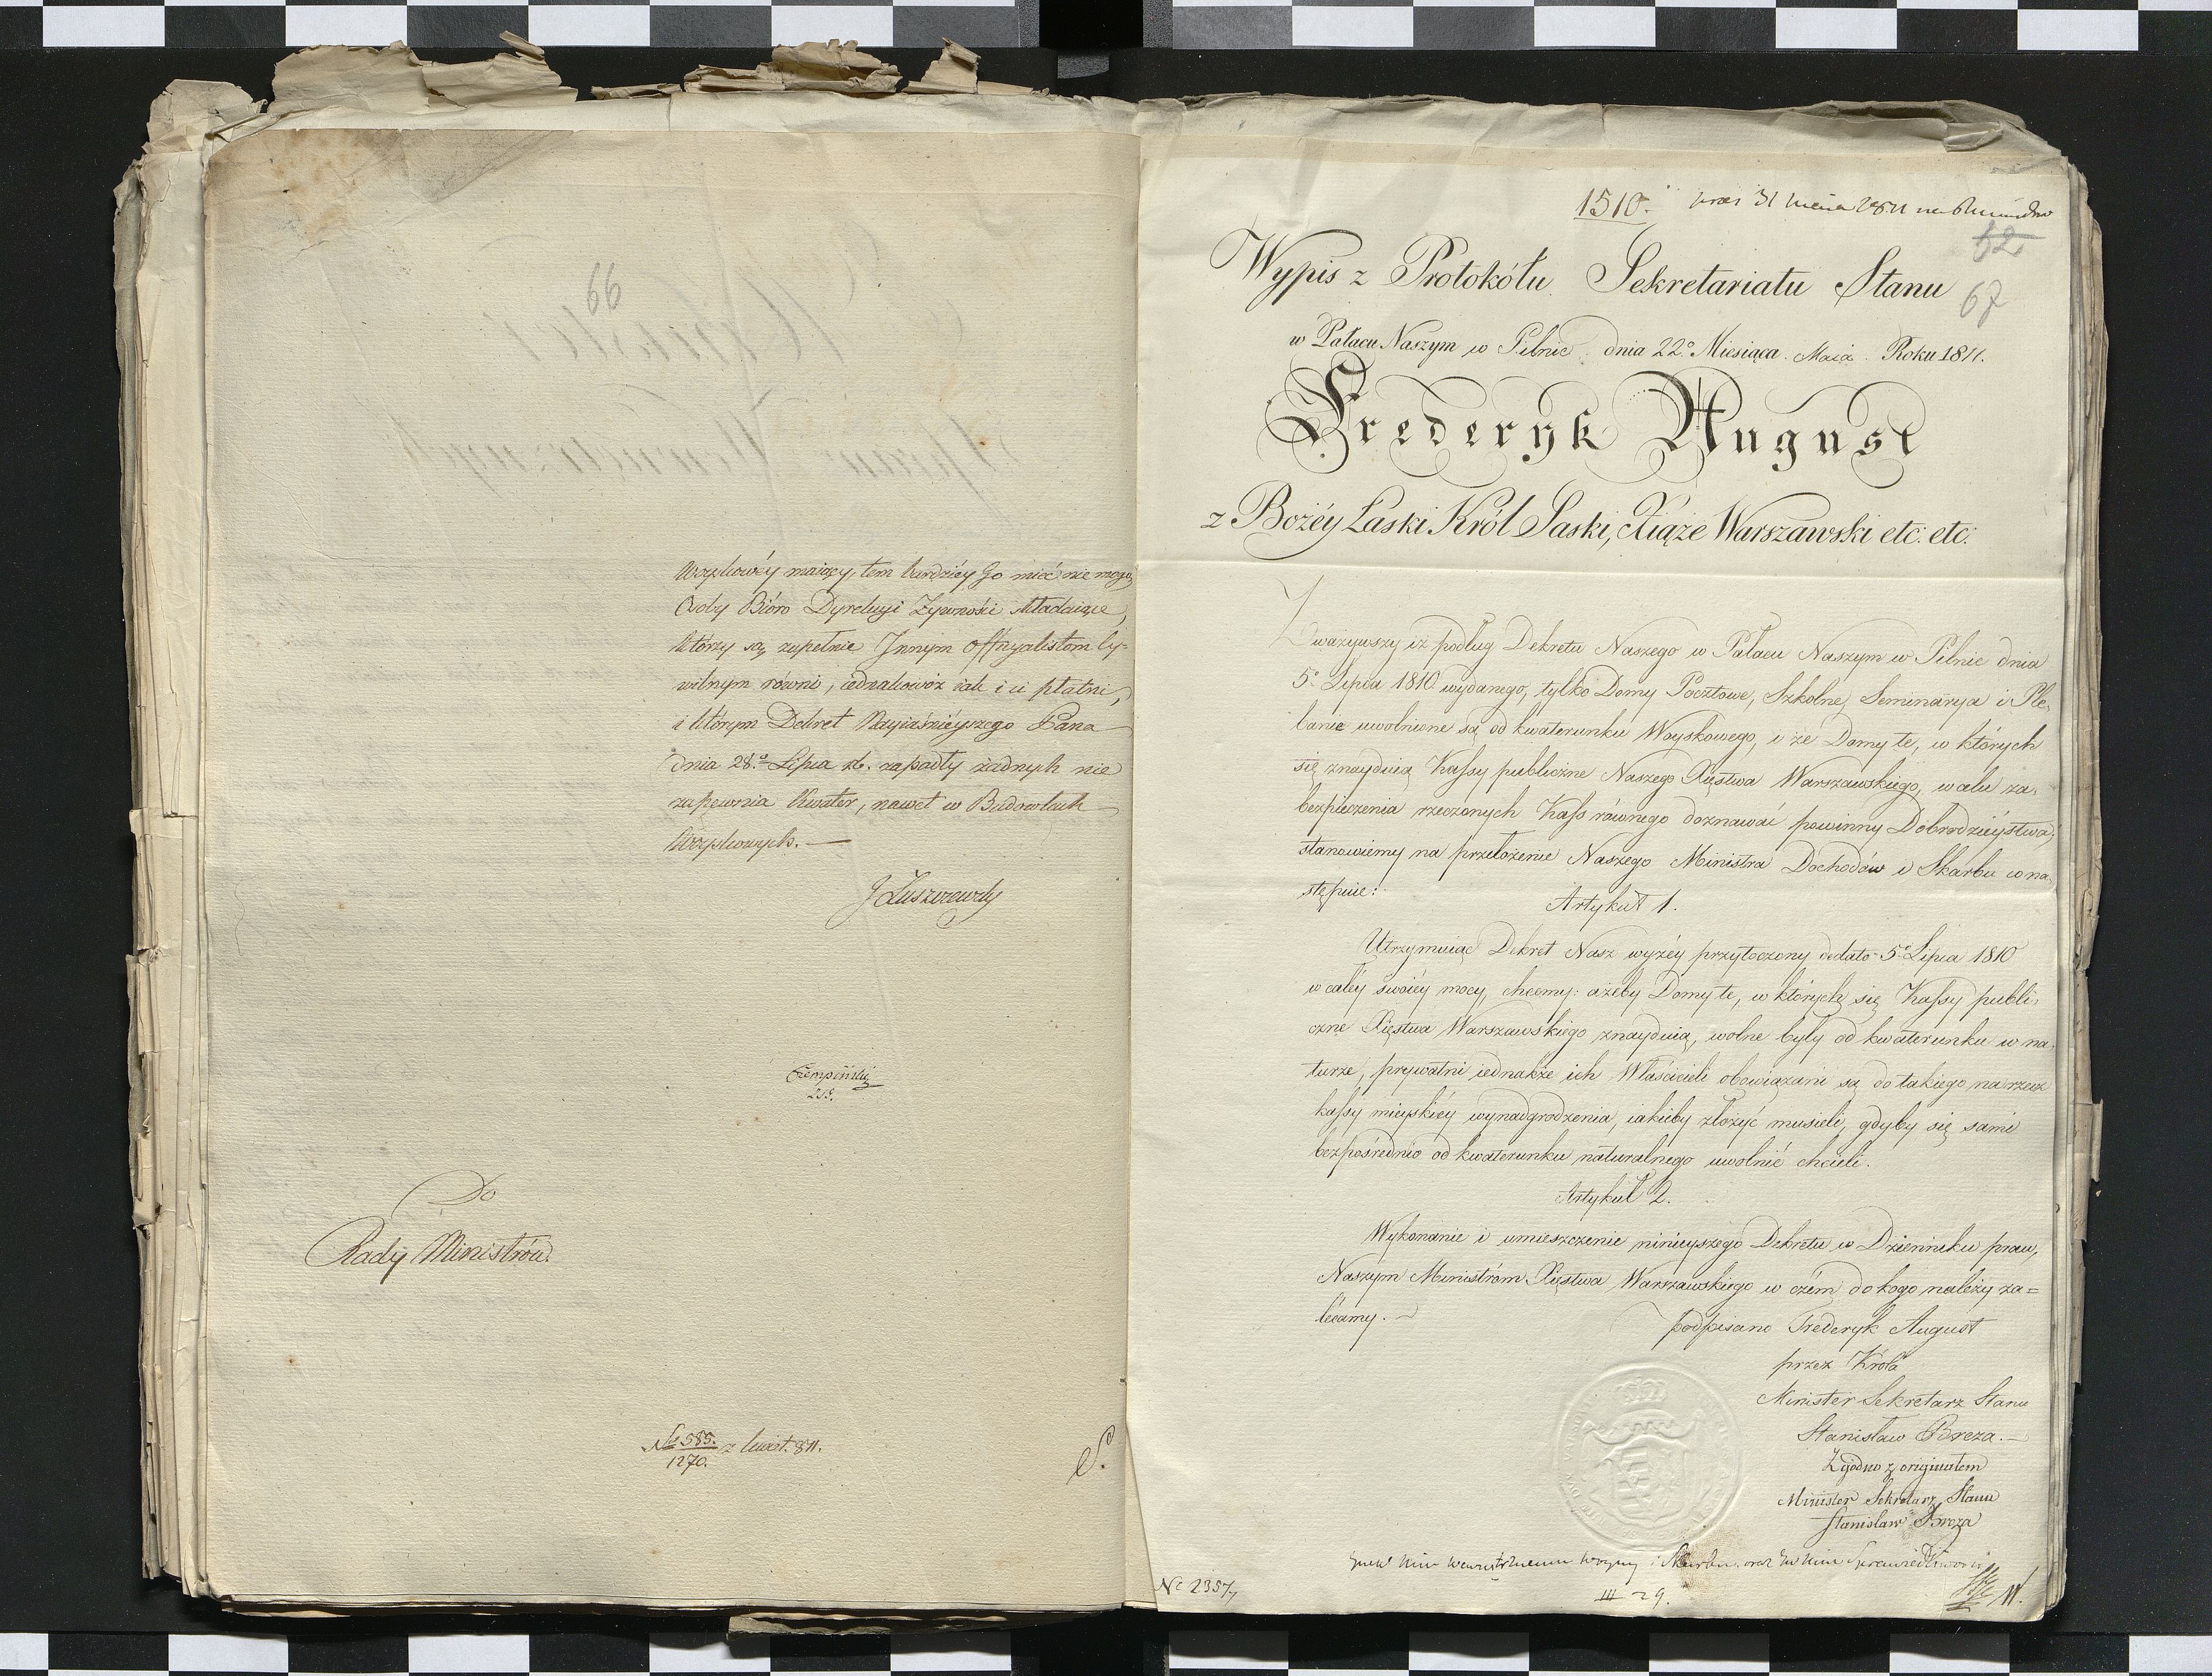 66
Woyskowéy maiący, tem bardziéy Go mieć nie mogą
Osoby Bióro Dyrekcyi Żywności składaiące,
którzy są zupełnie Innym Offcyalistom Cy-
wilnym równi, iednakowóż iak i ci płatni,
i którym Dekret Nayiaśnieyszego Pana
dnia 28.º Lipca zapadły żadnych nie
zapewnia Kwater, nawet w Budowlach
Woyskowych. —
J Łuszczewski
Do
Rady Ministrów.
No 585. z kwiet. 811.
1270.
1510. 31 1811
62
67
Wypis z Protokółu Sekretariatu Stanu
w Pałacu Naszym w Pilnic dnia 22º Miesiąca Maia Roku 1811.
Frederyk August
z Bożéy Łaski Król Saski, Xiąże Warszawski etc: etc:
Zważywszy iż podług Dekretu Naszego w Pałacu Naszym w Pilnic dnia
5º Lipca 1810 wydanego, tylko Domy Pocztowe, Szkolne, Seminarya i Ple,
banie uwolnione są od kwaterunku Woyskowego, i że Domy te, w których
się znayduią Kassy publiczne Naszego Xięstwa Warszawskiego, w celu za,
bezpieczenia rzeczonych Kass równego doznawać powinny Dobrodzieystwa;
stanowiemy na przełożenie Naszego Ministra Dochodów i Skarbu co na,
stępuie:
Artykuł 1.
Utrzymuiąc Dekret Nasz wyżéy przytoczony de dato 5º Lipca 1810
w całéy swoiéy mocy, chcemy: ażeby Domy te, w których się Kassy publi,
czne Xięstwa Warszawskiego znayduią, wolne były od kwaterunku w na,
turze, prywatni iednakże ich Właściciele obowiązani są do takiego na rzecz
kassy mieyskiéy wynadgrodzenia, iakieby złożyć musieli, gdyby się sami
bezpośrednio od kwaterunku naturalnego uwolnić chcieli.
Artykuł 2.
Wykonanie i umieszczenie ninieyszego Dekretu w Dzienniku praw,
Naszym Ministrom Xięstwa Warszawskiego w czém do kogo należy za=
lécamy.
podpisano Frederyk August
przez Króla
Minister Sekretarz Stanu
Stanisław Breza. —
Zgodno z originałem
Minister Sekretarz Stanu
Stanisław Breza
Nº 2357
III 29.